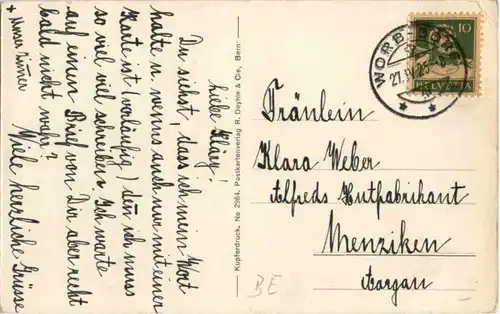 Liebe Kläry!
Du siehst, dass ich mein Wort
halte u. wenns auch nur mit einer
Karte ist (vorläufig) denn ich muss
so viel viel schreiben. Ich warte
auf einen Brief von Dir aber recht
bald nicht wahr?
Viele herzliche Grüsse
+ unser Zimmer
Kupferdruck, No 2164. Postkartenverlag R. Deyhle & Co, Bern
WORB-DORF
27.
10
HELVETIA
Fräulein
Klara Weber
Alfreds Hutfabrikant
Menziken
Aargau
BE